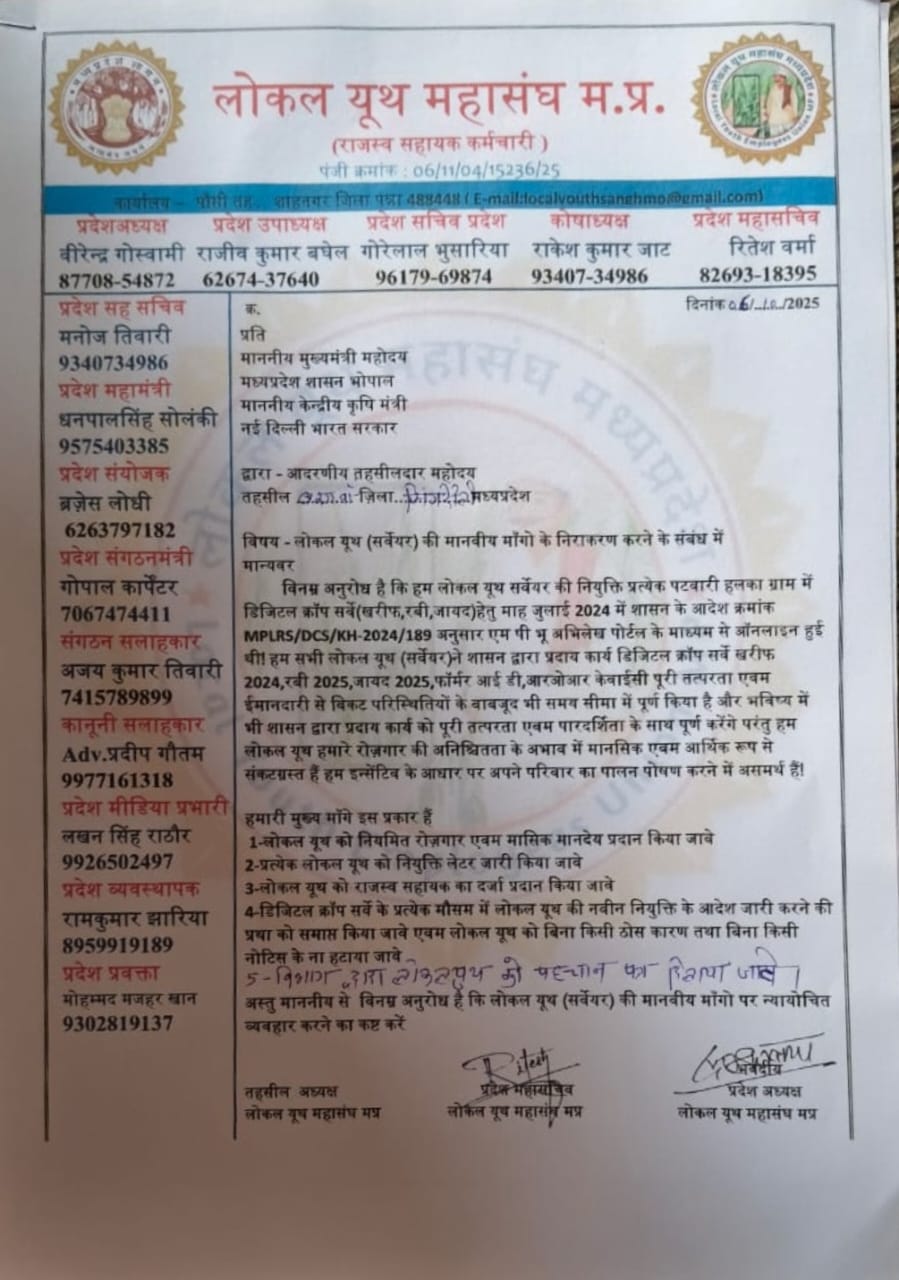 लोकल यूथ महासंघ म.प्र.
(राजस्व सहायक कर्मचारी )
पंजी क्रमांक : 06/11/04/15236/25
कार्यालय – पौसी तह., शाहनगर जिला पन्ना 488448 ( E-mail:localyouthsanghmp@gmail.com)
प्रदेशअध्यक्ष प्रदेश उपाध्यक्ष प्रदेश सचिव प्रदेश कोषाध्यक्ष प्रदेश महासचिव
वीरेन्द्र गोस्वामी राजीव कुमार बघेल गोरेलाल भुसारिया राकेश कुमार जाट रितेश वर्मा
87708-54872 62674-37640 96179-69874 93407-34986 82693-18395
प्रदेश सह सचिव
मनोज तिवारी
9340734986
प्रदेश महामंत्री
धनपालसिंह सोलंकी
9575403385
प्रदेश संयोजक
ब्रज़ेस लोधी
6263797182
प्रदेश संगठनमंत्री
गोपाल कार्पेंटर
7067474411
संगठन सलाहकार
अजय कुमार तिवारी
7415789899
कानूनी सलाहकार
Adv.प्रदीप गौतम
9977161318
प्रदेश मीडिया प्रभारी
लखन सिंह राठौर
9926502497
प्रदेश व्यवस्थापक
रामकुमार झारिया
8959919189
प्रदेश प्रवक्ता
मोहम्मद मजहर खान
9302819137
क्र. दिनांक 06/10/2025
प्रति
माननीय मुख्यमंत्री महोदय
मध्यप्रदेश शासन भोपाल
माननीय केन्द्रीय कृषि मंत्री
नई दिल्ली भारत सरकार
द्वारा - आदरणीय तहसीलदार महोदय
तहसील ज़िला.. मध्यप्रदेश
विषय - लोकल यूथ (सर्वेयर) की मानवीय माँगो के निराकरण करने के संबंध में
मान्यवर
विनम्र अनुरोध है कि हम लोकल यूथ सर्वेयर की नियुक्ति प्रत्येक पटवारी हलका ग्राम में
डिजिटल क्रॉप सर्वे(खरीफ,रबी,जायद)हेतु माह जुलाई 2024 में शासन के आदेश क्रमांक
MPLRS/DCS/KH-2024/189 अनुसार एम पी भू अभिलेख पोर्टल के माध्यम से ऑनलाइन हुई
थी! हम सभी लोकल यूथ (सर्वेयर)ने शासन द्वारा प्रदाय कार्य डिजिटल क्रॉप सर्वे खरीफ
2024,रवी 2025,जायद 2025,फॉर्मर आई डी,आरओआर केवाईसी पूरी तत्परता एवम
ईमानदारी से विकट परिस्थितियों के वाबजूद भी समय सीमा में पूर्ण किया है और भविष्य में
भी शासन द्वारा प्रदाय कार्य को पूरी तत्परता एवम पारदर्शिता के साथ पूर्ण करेंगे परंतु हम
लोकल यूथ हमारे रोज़गार की अनिश्चितता के अभाव में मानसिक एवम आर्थिक रूप से
संकटग्रस्त हैं हम इन्सेंटिव के आधार पर अपने परिवार का पालन पोषण करने में असमर्थ हैं!
हमारी मुख्य माँगे इस प्रकार हैं
1-लोकल यूथ को नियमित रोज़गार एवम मासिक मानदेय प्रदान किया जावे
2-प्रत्येक लोकल यूथ को नियुक्ति लेटर जारी किया जावे
3-लोकल यूथ को राजस्व सहायक का दर्जा प्रदान किया जावे
4-डिजिटल क्रॉप सर्वे के प्रत्येक मौसम में लोकल यूथ की नवीन नियुक्ति के आदेश जारी करने की
प्रथा को समाप्त किया जावे एवम लोकल यूथ को बिना किसी ठोस कारण तथा बिना किसी
नोटिस के ना हटाया जावे
5- विभाग द्वारा लोकलयुथ को पहचान पत्र दिलाया जावे।
अस्तु माननीय से विनम्र अनुरोध है कि लोकल यूथ (सर्वेयर) की मानवीय माँगो पर न्यायोचित
व्यवहार करने का कष्ट करें
Ritesh
भवदीय
तहसील अध्यक्ष प्रदेश महासचिव प्रदेश अध्यक्ष
लोकल यूथ महासंघ मप्र लोकल यूथ महासंघ मप्र लोकल यूथ महासंघ मप्र